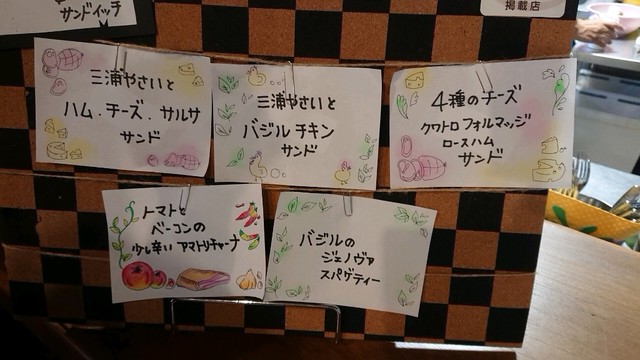 サンドイッチ
掲載店
三浦やさいと
ハム・チーズ・サルサ
サンド
三浦やさいと
バジルチキン
サンド
4種のチーズ
クワトロフォルマッジ
ロースハム
サンド
トマトと
ベーコンの
少し辛いアマトリチャーナ
バジルの
ジェノヴァ
スパゲティー